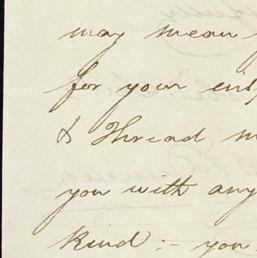 may mean
for your
& Thread
you with any
kind :- you